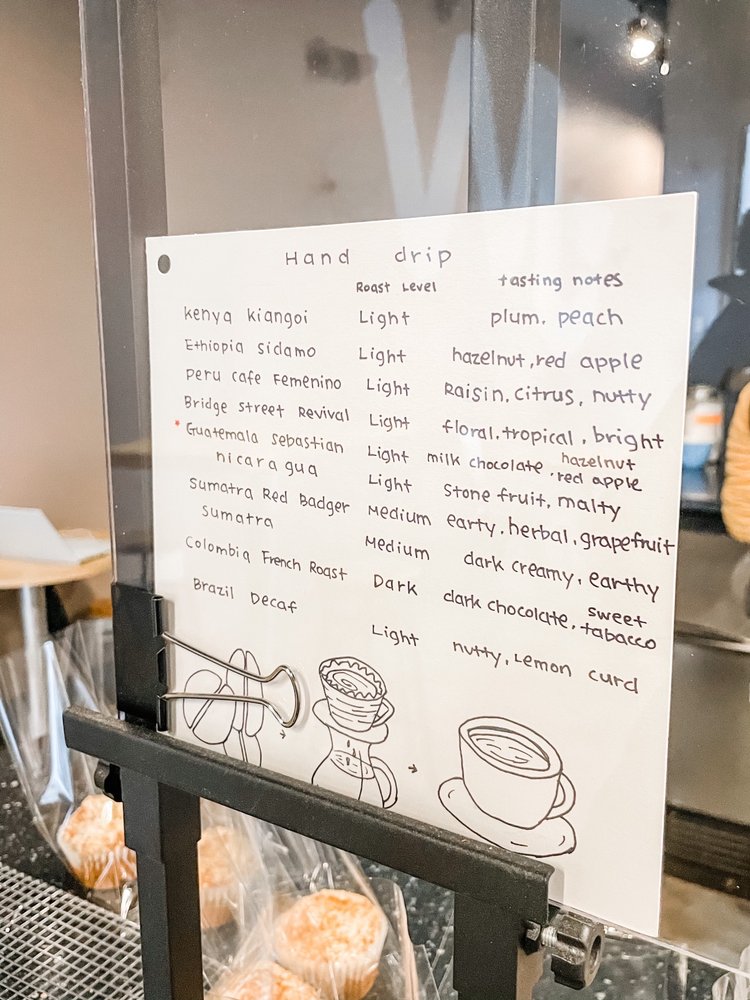 Hand drip
Roast Level tasting notes
kenya kiangoi Light plum. peach
Ethiopia sidamo Light hazelnut, red apple
Peru cafe Femenino Light Raisin, citrus, nutty
Bridge street Revival Light floral, tropical, bright
* Guatemala sebastian Light milk chocolate, hazelnut
red apple
nicaragua Light Stone fruit, malty
Sumatra Red Badger Medium earty, herbal, grapefruit
Sumatra Medium dark creamy, earthy
Colombia French Roast Dark dark chocolate, sweet
tabacco
Brazil Decaf Light nutty, Lemon curd